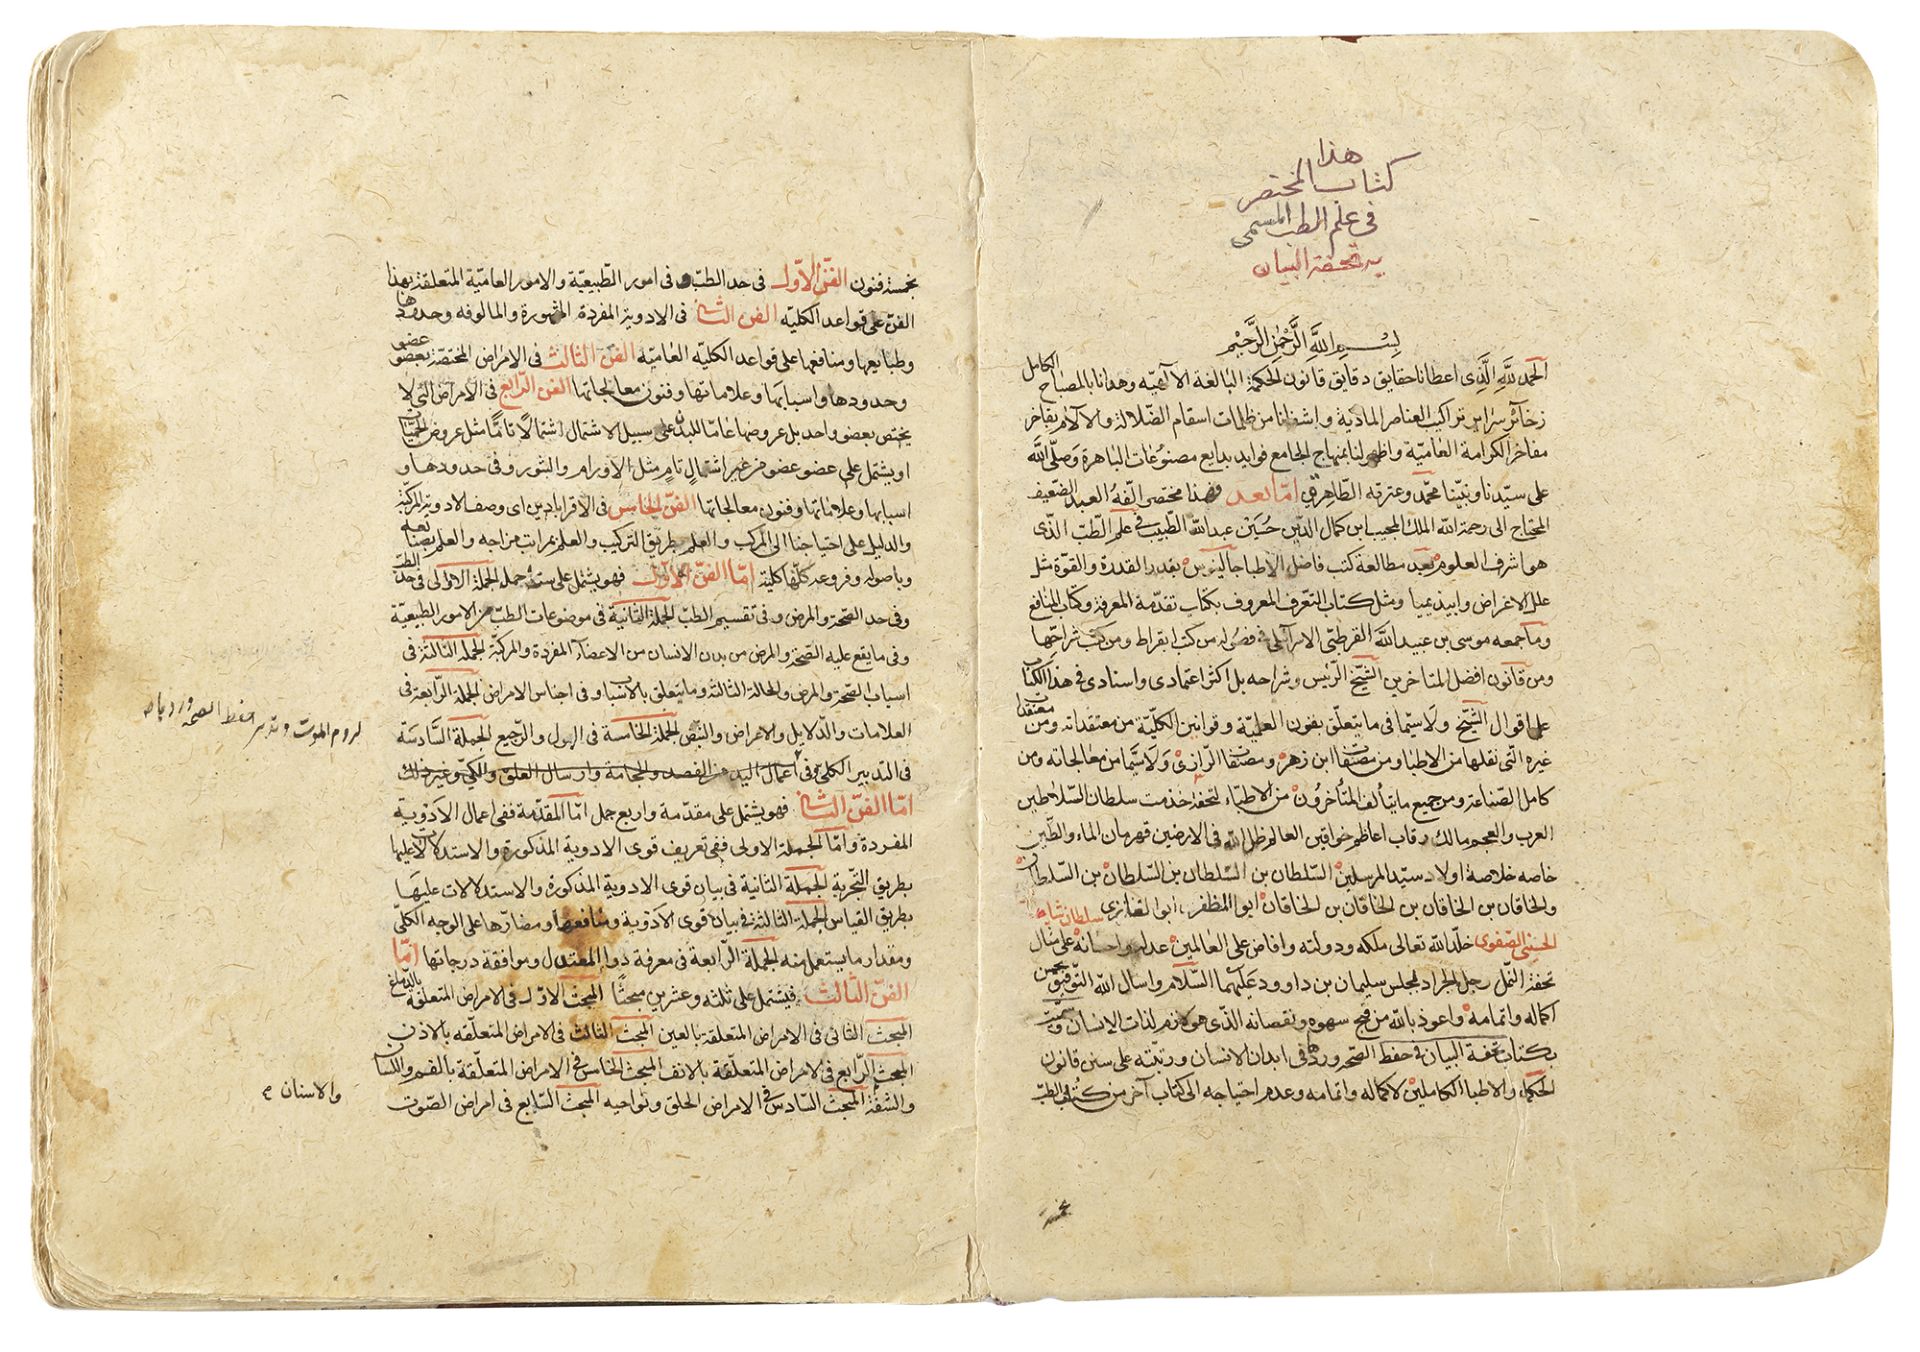 هذا
كتاب المختصر
فى علم الطب المسمى
بتحفة البيان
بسم الله الرحمن الرحيم
الحمد لله الذى اعطانا حقايق دقايق قانون الحكمة البالغة الآلهيه وهدانا بالمصباح الكامل
زخائر سراير تراكيب العناصر المادية واشفانا من ظلمات اسقام الضلالة والآلام بفاخر
مفاخر الكرامة العاميّة واظهر لنا بمنهاج الجامع فوايد بدايع مصنوعات الباهرة وصلى الله
على سيّدنا ونبيّنا محمد وعترته الطاهرين امّا بعد فهذا مختصر الّفه العبد الضعيف
المحتاج الى رحمة الله الملك المجيب ابن كمال الدين حسين عبد الله الطبيب فى علم الطبّ الذى
هو اشرف العلوم بعد مطالعة كتب فاضل الاطبا جالينوس بقدر القدرة والقوّة مثل
علل الاعراض وابيذيميا ومثل كتاب التعرف المعروف بكتاب تقدمة المعرفة وكتاب المنافع
وما جمعه موسى بن عبيد الله القرطبى الاسرآئلى فى فصوله من كتب ابقراط ومن كتب شراحها
ومن قانون افضل المتاخرين الشيخ الرئيس وشراحه بل اكثر اعتمادى واسنادى فى هذا الكتاب
على اقوال الشيخ ولا سيّما فى ما يتعلق بفنون العلميّة وقوانين الكليّة من معتقداته ومن معتقدات
غيره التى نقلها من الاطبا ومن مصنفات ابن زهر ومصنفات الرازى ولا سيّما من معالجاته ومن
كامل الصناعة ومن جميع ما يتألف المتأخرون من الاطباء لتحفة خدمت سلطان السلاطين
العرب والعجم مالك رقاب اعاظم خواقين العالم ظل الله فى الارضين قهرمان الماء والطين
خاصه خلاصة اولاد سيّد المرسلين السلطان بن السلطان بن السلطان بن السلطان
والخاقان بن الخاقان بن الخاقان بن الخاقان ابوا المظفر ابوا الغازى سلطان شاه
الحسينى الصفوى خلّد الله تعالى ملكه ودولته وافاض على العالمين عدله واحسانه على مثال
تحفة النمل رجل الجراد لمجلس سليمان بن داوود عليهما السّلام واسال الله التوفيق بحسن
اكماله واتمامه واعوذ بالله من قبح سهوه ونقصانه الذى هو لازم لذات الانسان وسميته
بكتاب تحفة البيان فى حفظ الصحة وردها فى ابدان الانسان ورتبته على سنن قانون
الحكماء والاطبا الكاملين لاكماله واتمامه وعدم احتياجه الى كتاب آخر من كتب الطب
بخمسة فنون الفنّ الاوّل فى حد الطب وفى امور الطبيعيّة والامور العاميّة المتعلقة بهذا
الفن على قواعد الكليّة الفن الثانى فى الادوية المفردة المشهورة والمالوفه وحدودها
وطبايعها ومنافعها على قواعد الكليّه العاميّه الفن الثالث فى الامراض المختصة بعضو عضو
وحدودها واسبابها وعلاماتها وفنون معالجاتها الفن الرّابع فى الامراض التى لا
يختص بعضو واحد بل عروضها عامّا للبدن على سبيل الاشتمال اشتمالًا تامًا مثل عروض الحميات
او يشتمل على عضو عضو من غير اشتمال تام مثل الاورام والبثور وفى حدودها و
اسبابها وعلاماتها وفنون معالجاتها الفنّ الخامس فى الاقراباذين اى وصف الادوية المركبّة
والدليل على احتياجنا الى المركب والعلم بطريق التركيب والعلم بمراتب مزاجه والعلم بصناعته
وباصوله وفروعه كلّها كلية امّا الفنّ الاوّل فهو يشتمل على ستة جمله الجملة الاولى فى حد الطب
وفى حد الصحة والمرض وفى تقسيم الطب الجملة الثانية فى موضوعات الطب من الامور الطبيعيّة
وفى ما يقع عليه الصّحة والمرض من بدن الانسان من الاعضآء المفردة والمركبّة الجملة الثالثة فى
اسباب الصحة والمرض والحالة الثالثة وما يتعلق بالاسباب وفى اجناس الامراض الجملة الرابعة فى
العلامات والدّلايل والاعراض والنبض الجملة الخامسة فى البول والرجيع الجملة السّادسة
فى التدبير الكلى وفى اعمال اليد من الفصد والحجامة وارسال العلق والكىّ وغير ذلك
لزوم الموت وتدبير حفظ الصحة
امّا الفنّ الثانى فهو يشتمل على مقدمة واربع جمل امّا المقدّمة ففى اعمال الادوية
المفردة وامّا الجملة الاولى ففى تعريف قوى الادوية المذكورة والاستدلالات عليها
بطريق التجربة الجملة الثانية فى بيان قوى الادوية المذكورة والاستدلالات عليها
بطريق القياس الجملة الثالثة فى بيان قوى الادوية ومنافعها ومضارّها على الوجه الكلّى
ومقدار ما يستعمل منه الجملة الرّابعة فى معرفة دوا المعتدل وموافقة درجاتها امّا
الفنّ الثالث فيشتمل على ثلثه وعشرين مبحثًا المبحث الاوّل فى الامراض المتعلقة بالدماغ
المبحث الثانى فى الامراض المتعلقة بالعين المبحث الثالث فى الامراض المتعلّقه بالاذن
المبحث الرّابع فى الامراض المتعلّقة بالانف المبحث الخامس فى الامراض المتعلّقة بالفم واللسان
والاسنان
والشفة المبحث السّادس فى الامراض الحلق ونواحيه المبحث السّابع فى امراض الصّوت